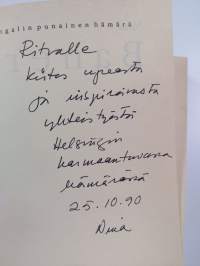 ngalin punainen hämärä
Ritvalle
kiitos upeasta
ja inspiroivasta
yhteistyöstä
Helsingin
harmaantuvassa
hämärässä
25.10.90
Nina